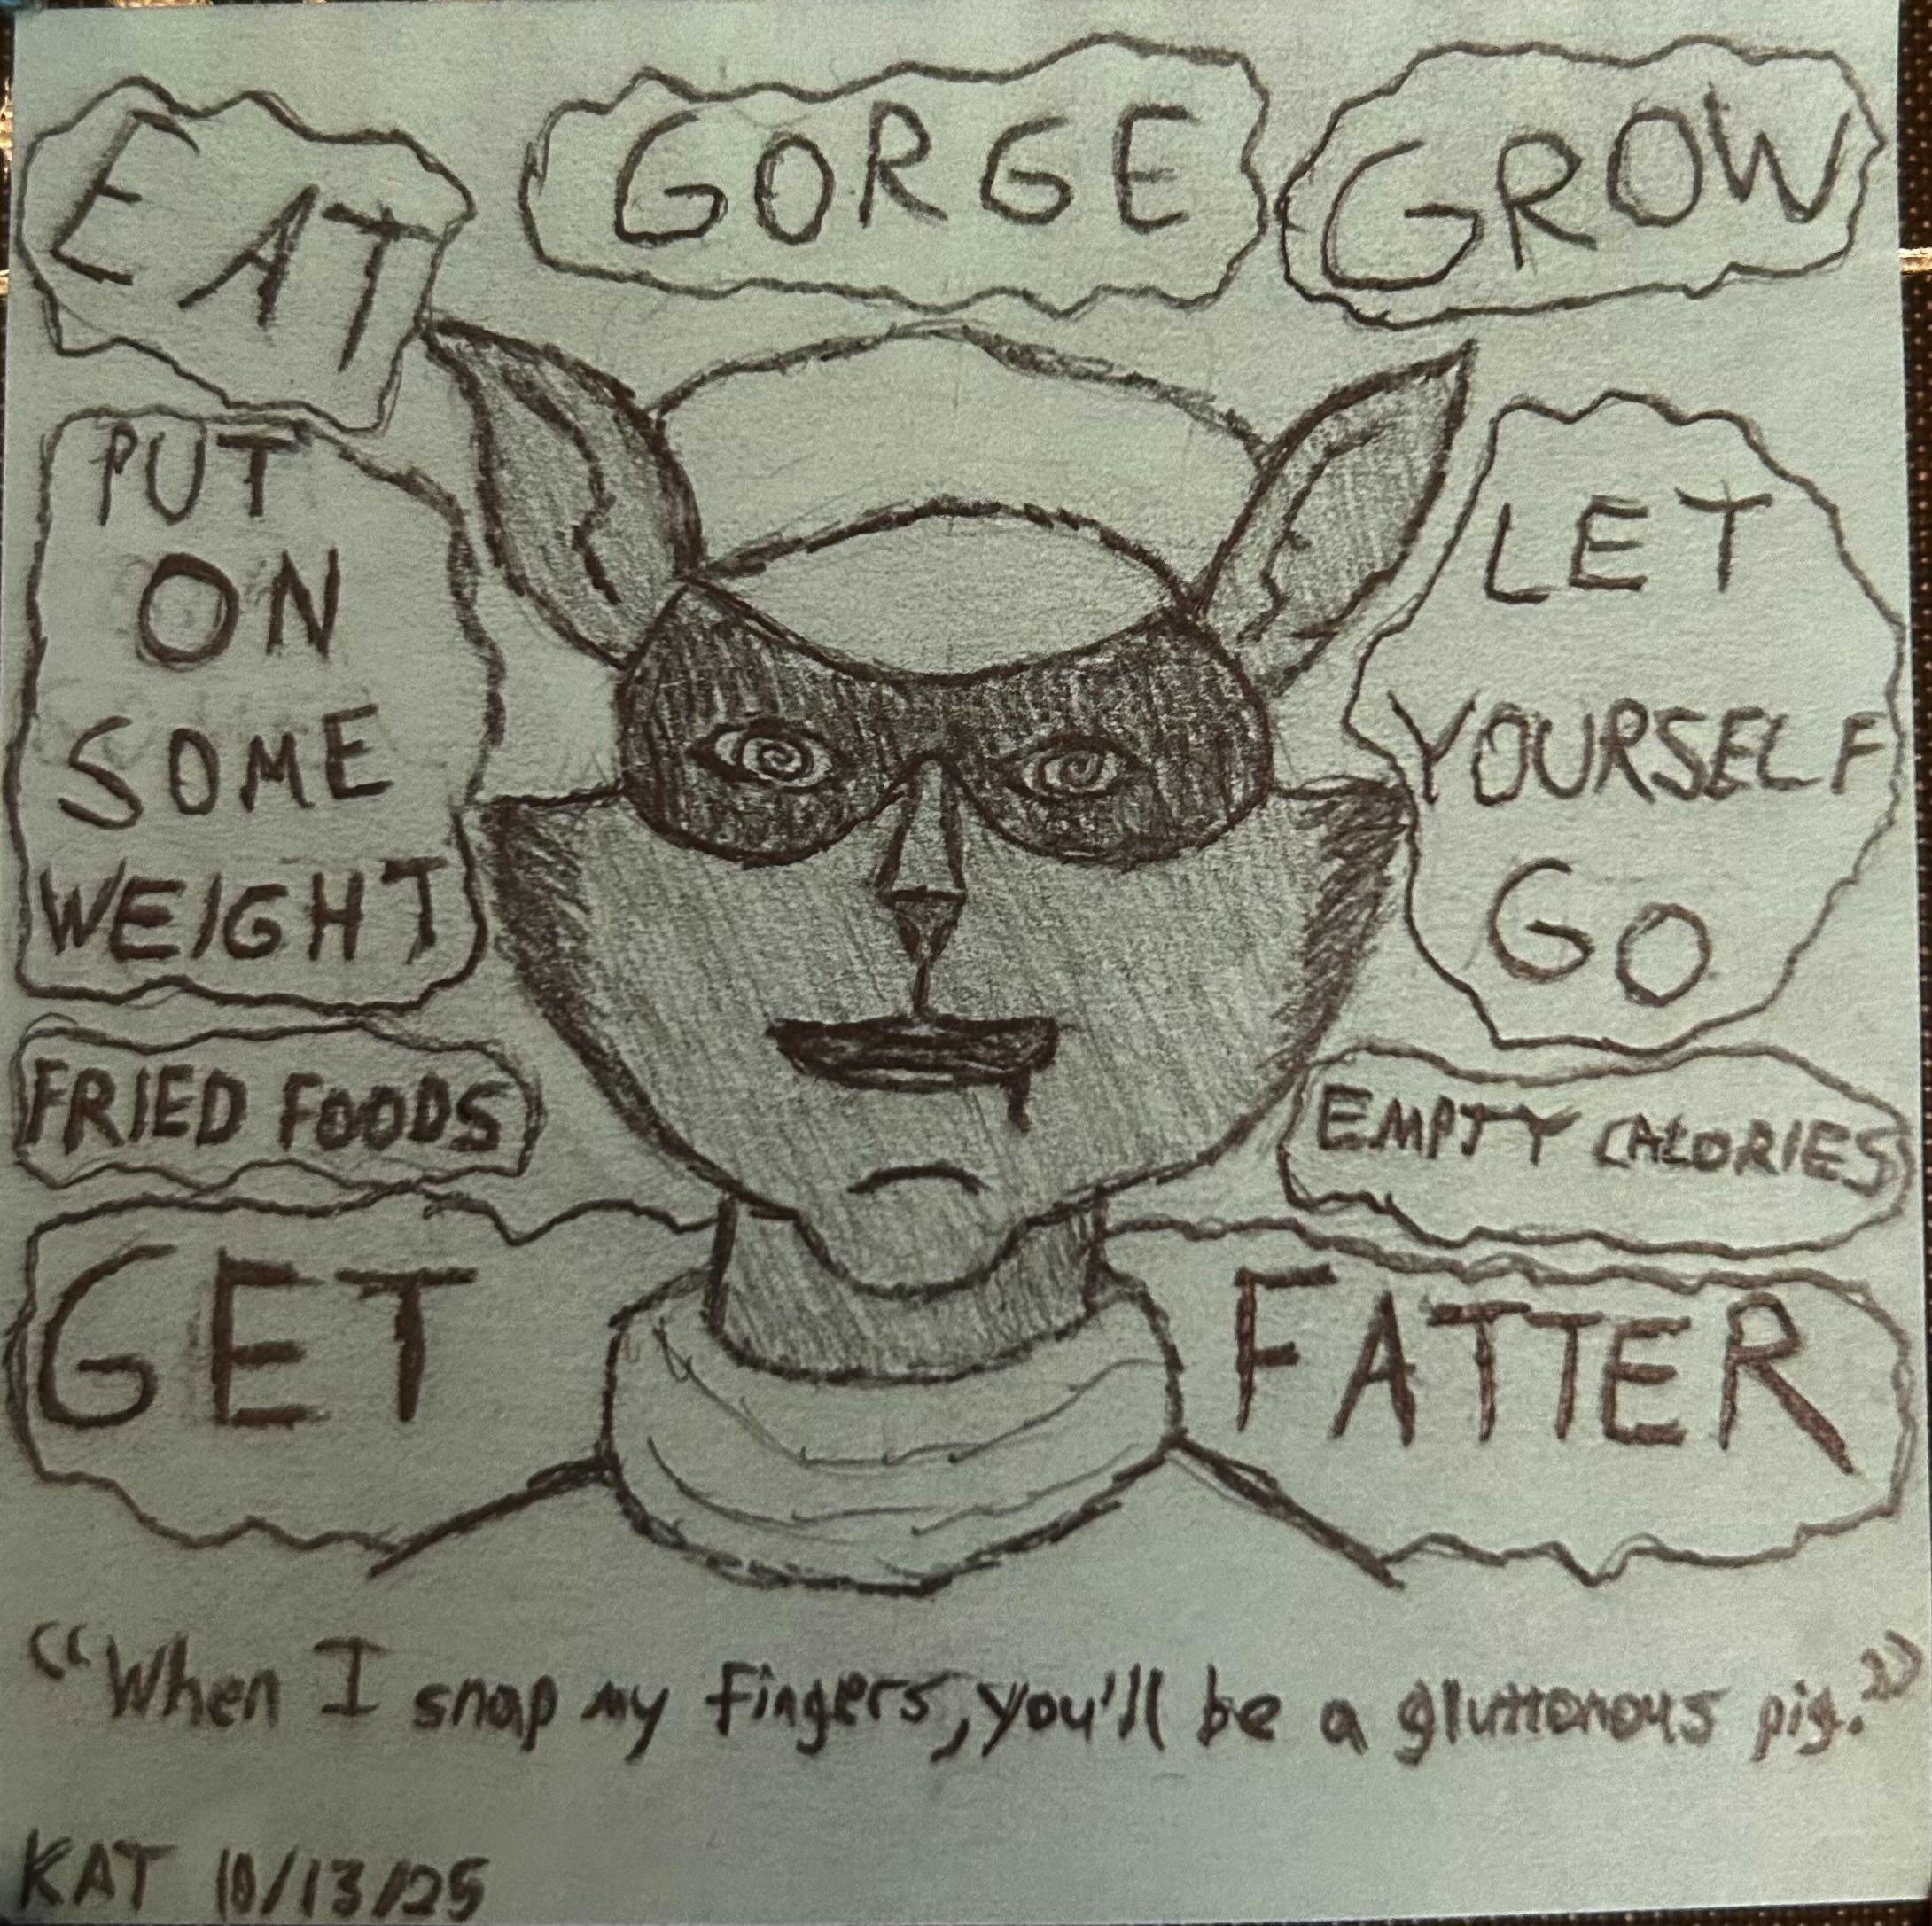 EAT
GORGE
GROW
PUT
ON
SOME
WEIGHT
LET
YOURSELF
GO
FRIED FOODS
EMPTY CALORIES
GET
FATTER
“When I snap my fingers, you'll be a gluttonous pig.”
KAT 10/13/25